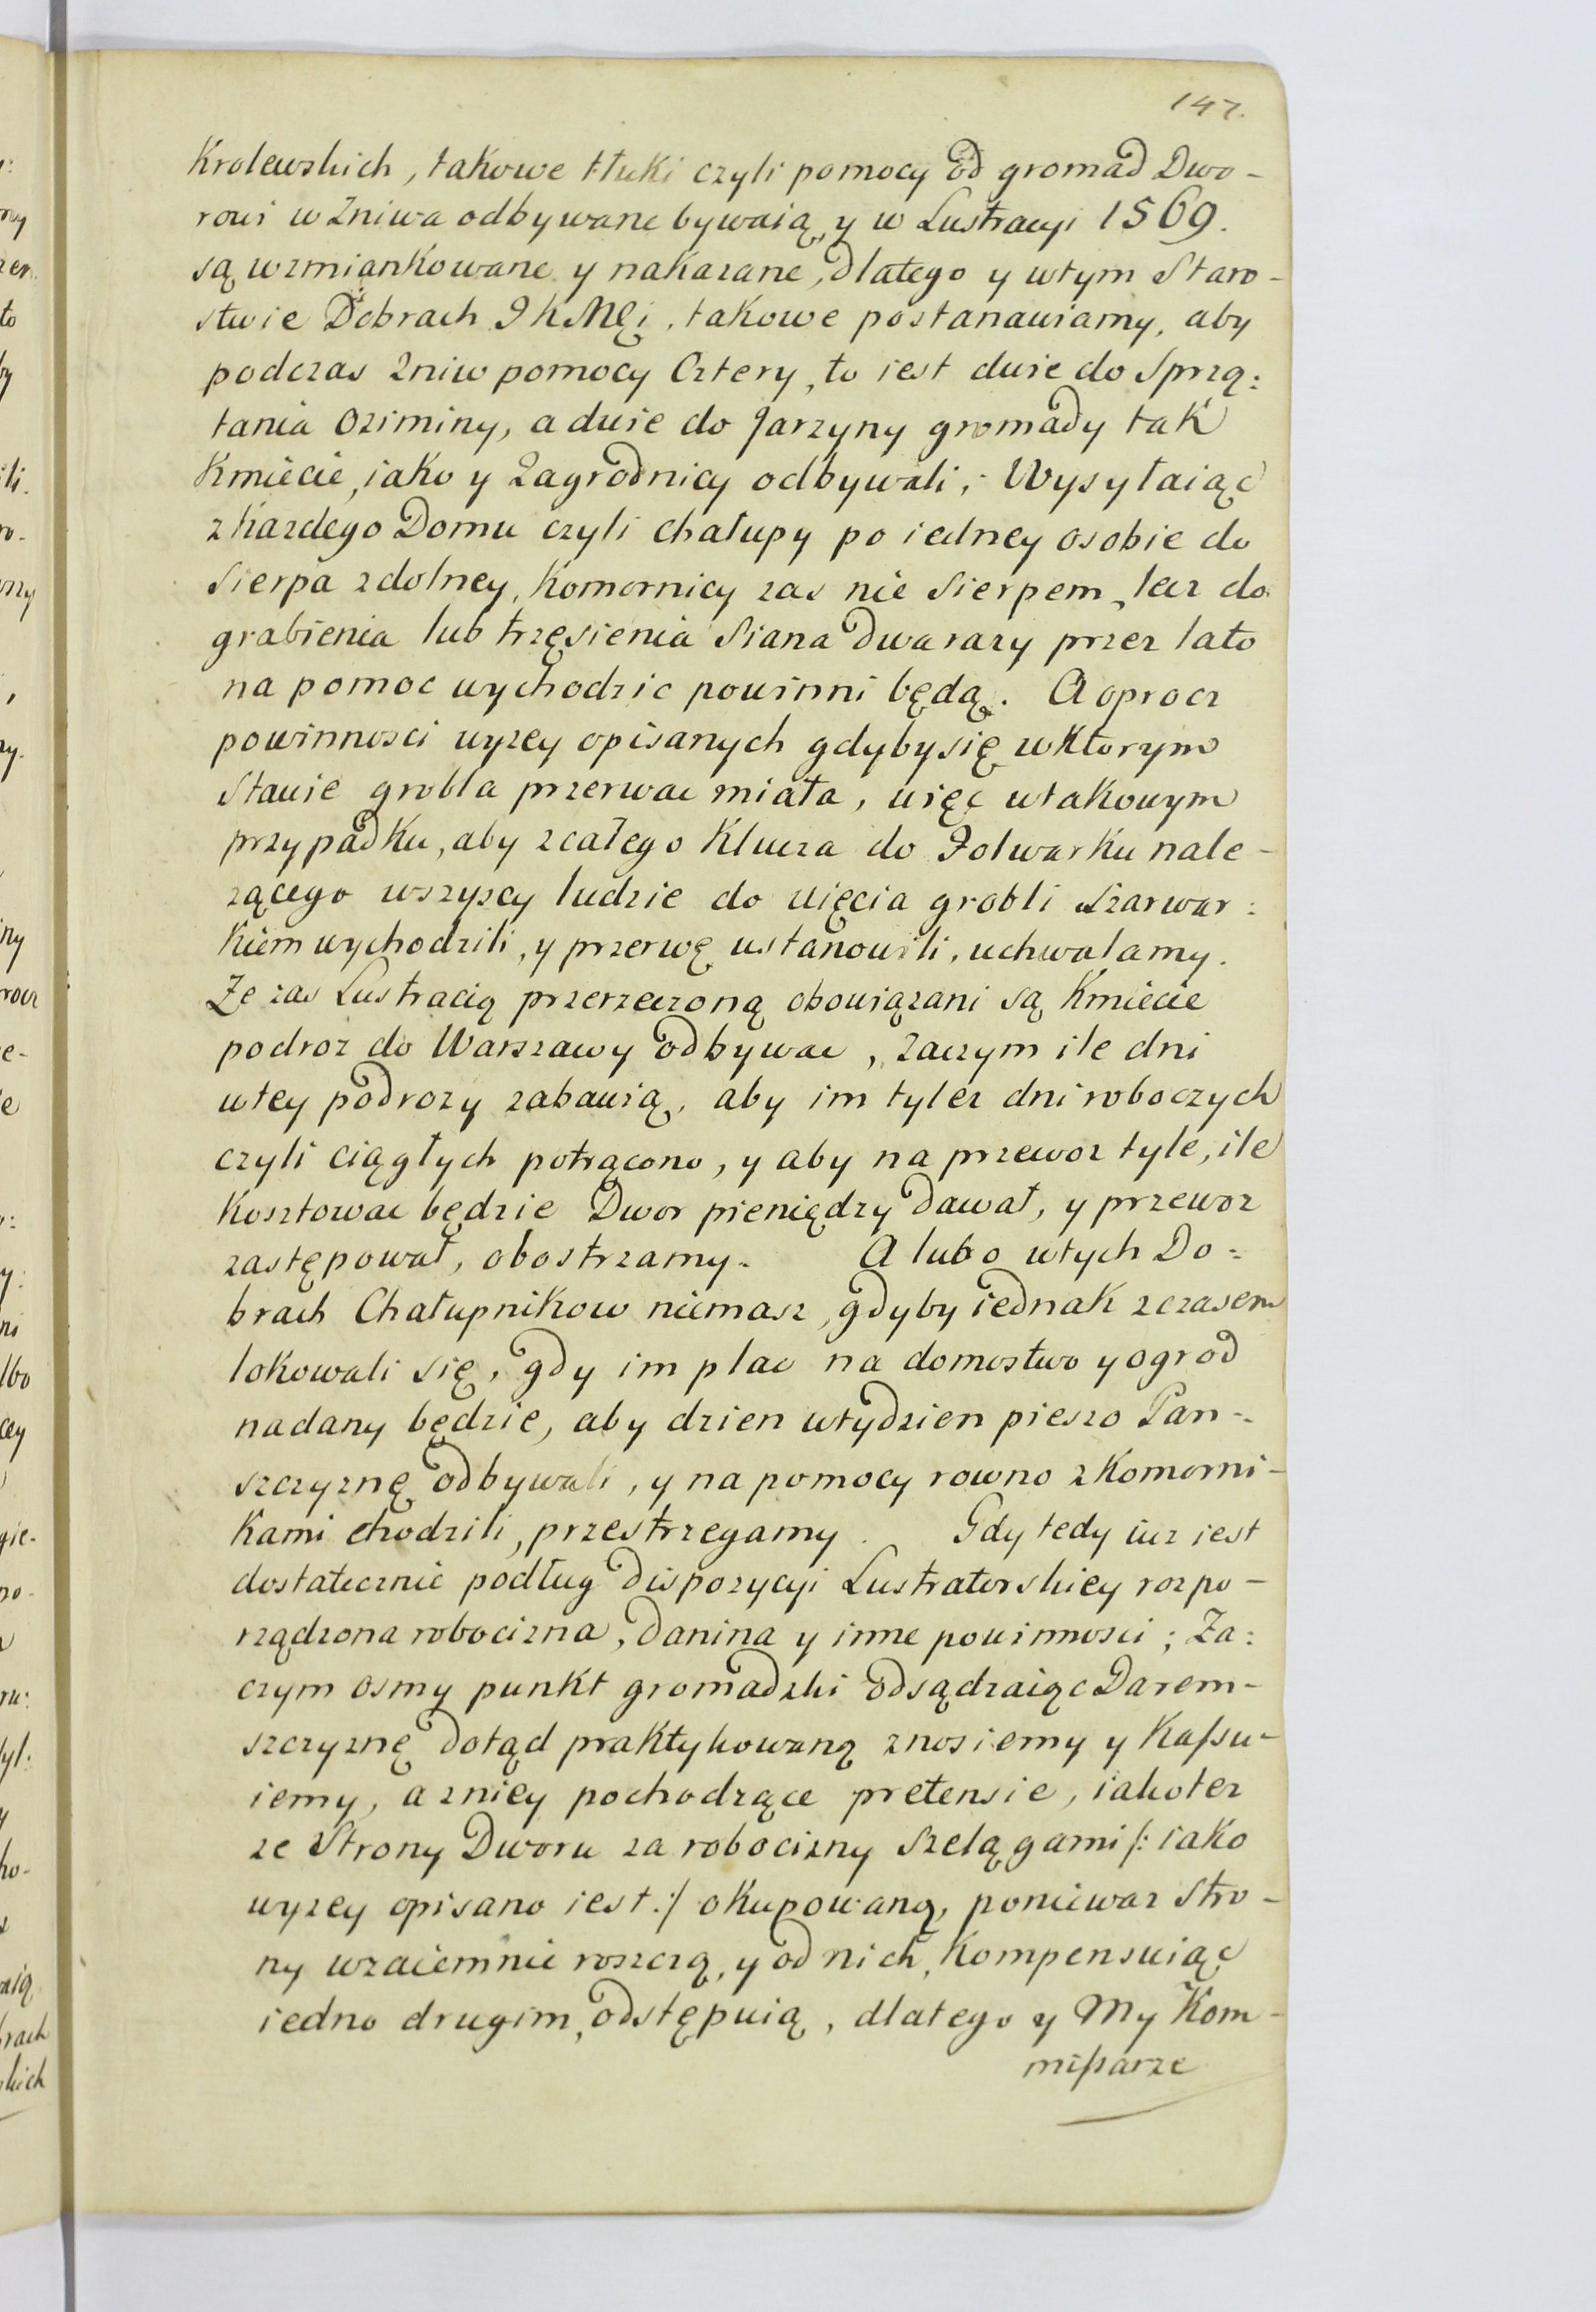 147.
Krolewskich, takowe tłuki czyli pomocy od gromad Dwo-
rowi w Zniwa odbywane bywaią, y w Lustracyi 1569.
są wzmiankowane y nakazane, dlatego y wtym Staro-
stwie Dobrach JKMći, takowe postanawiamy, aby
podczas Zniw pomocy Cztery, to iest dwie do Sprzą:
tania Oziminy, a dwie do Jarzyny gromady tak
Kmiecie, iako y Zagrodnicy odbywali; Wysyłaiąc
z Kazdego Domu czyli chałupy po iedney osobie do
Sierpa zdolney, Komornicy zas nie Sierpem, lecz do
grabienia lub trzęsienia Siana dwa razy przez lato
na pomoc wychodzic powinni będą. A oprocz
powinnosci wyzey opisanych gdybysię wKtorym
Stawie grobla przerwac miała, więc wtakowym
przypadku, aby zcałego Klucza do Folwarku nale-
zącego wszyscy ludzie do uięcia grobli Szarwar:
kiem wychodzili, y przerwę ustanowili, uchwalamy.
Ze zas Lustracią przerzeczoną obowiązani są Kmiecie
podroz do Warszawy odbywac, zaczym ile dni
wtey podrozy zabawią, aby im tylez dni roboczych
czyli ciągłych potrącono, y aby na przewoz tyle, ile
Kosztowac będzie Dwor pieniędzy dawał, y przewoz
zastępował, obostrzamy. A lubo wtych Do-
brach Chałupnikow niemasz, gdyby iednak zczasem
lokowali się, gdy im plac na domostwo y ogrod
nadany będzie, aby dzien wtydzien pieszo Pan-
szczyznę odbywali, y na pomocy rowno z Komorni-
kami chodzili, przestrzegamy. Gdy tedy iuz iest
dostatecznie podług dispozycyi Lustratorskiey rozpo-
rządzona robocizna, Danina y inne powinnosci; Za:
czym osmy punkt gromadzki odsądzaiąc Darem-
szczyznę dotąd praktykowaną znosiemy y Kassu-
iemy, a zniey pochodzące pretensie, iakotez
ze Strony Dworu za robocizny Szelągami /: iako
wyzey opisano iest :/ okupowaną, poniewaz Stro-
ny wzaiemnie roszczą, y od nich, Kompensuiąc
iedno drugim, odstępuią, dlatego y My Kom-
missarze